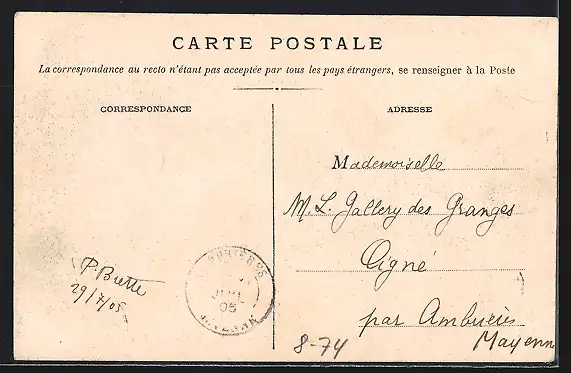 CARTE POSTALE
La correspondance au recto n'étant pas acceptée par tous les pays étrangers, se renseigner à la Poste
CORRESPONDANCE
ADRESSE
Mademoiselle
M. L. Gallery des Granges
Cigné
par Ambrières
Mayenn
P. Brette
29/7/05
05
8-74